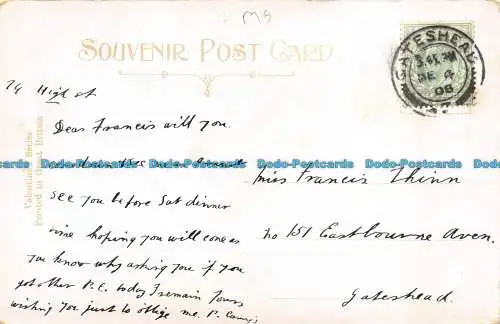 MS
SOUVENIR POST CARD
GATESHEAD
DE 4
06
79 High st
Dear Francis will you
see you before Sat dinner
time hoping you will come as
you know why asking you if you
got other P.C. today I remain Yours
wishing you just to oblige me. P.
Miss Francis Thinn
No 151 Eastbourne Aven.
Gateshead.
Valentines Series
Printed in Great Britain
Dodo-Postcards Dodo-Postcards Dodo-Postcards Dodo-Postcards Dodo-Postcards Dodo-Postcards